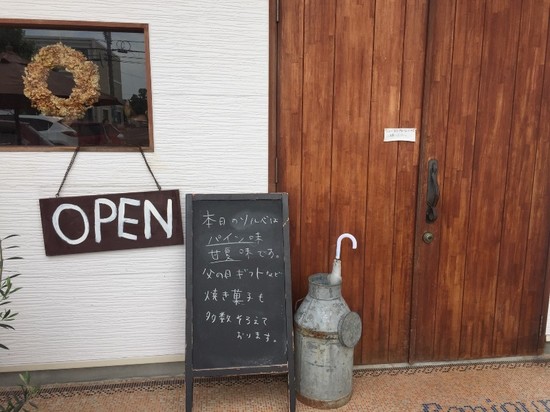 OPEN
本日のソルベは
パイン味
甘夏味です。
父の日ギフトなど
焼き菓子も
多数そろえて
おります。
Bonjour